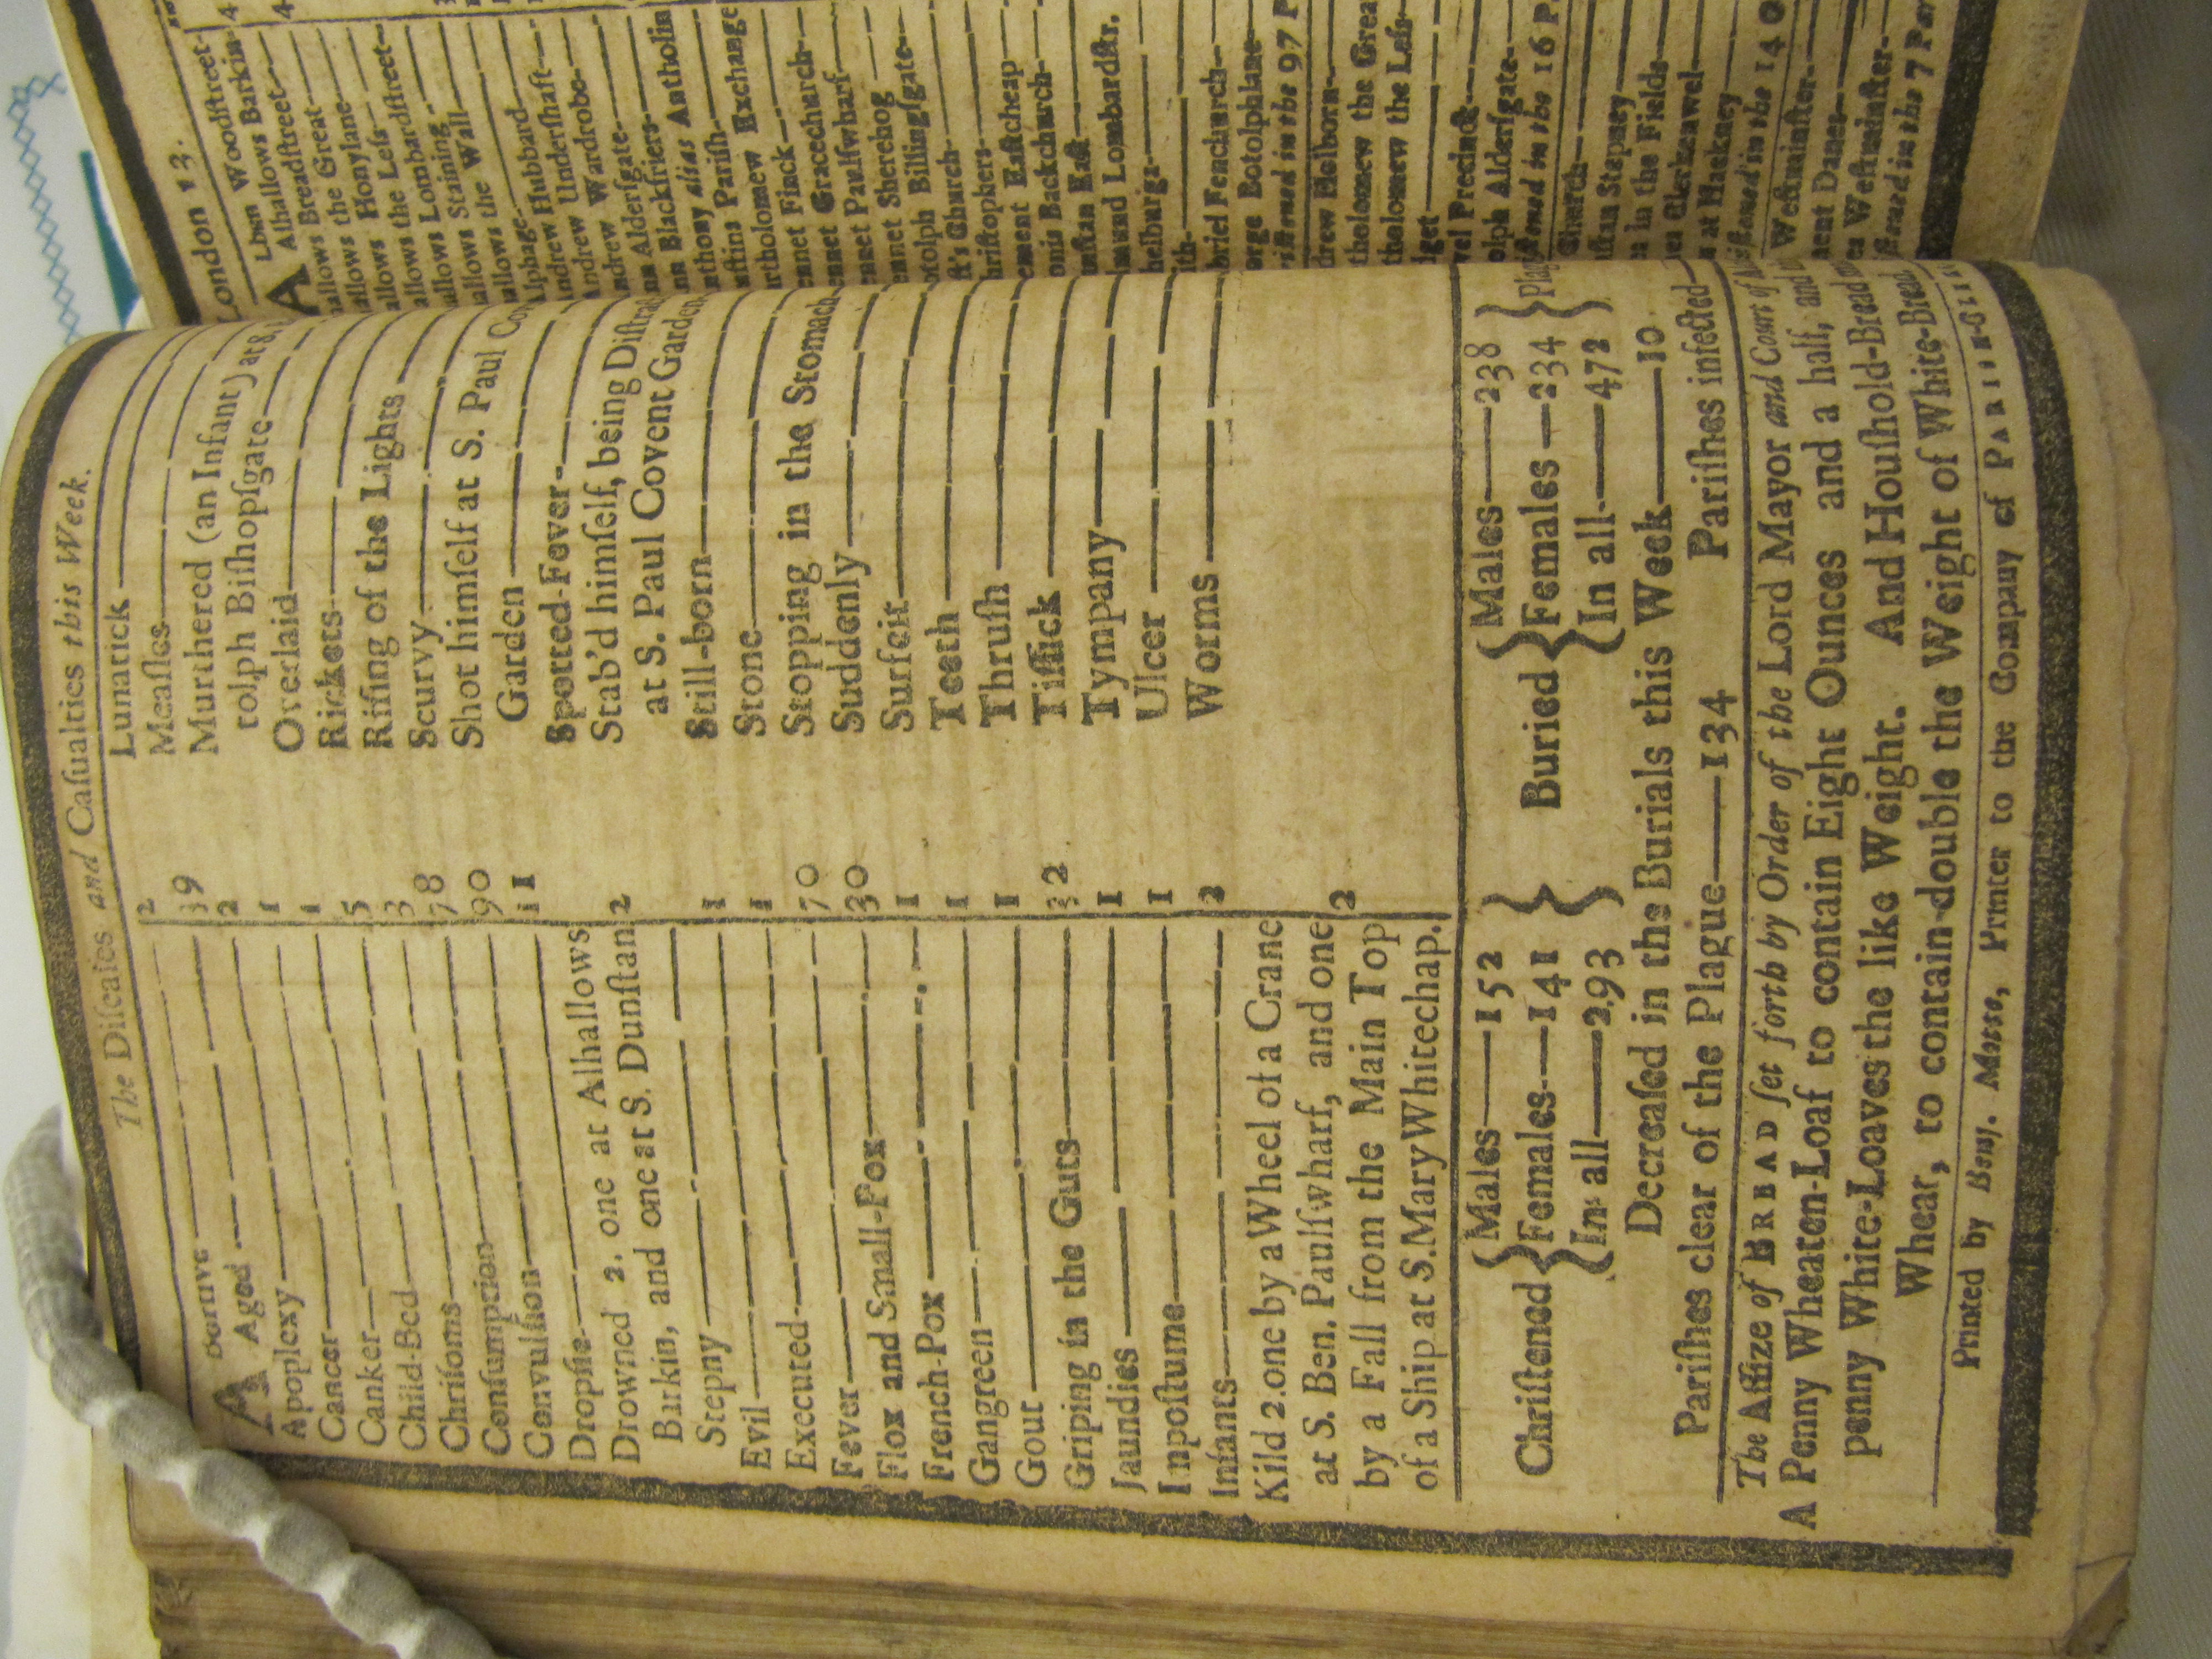 The Diſeaſes and Caſualties this Week.
Abortive 2
Aged 39
Apoplexy 2
Cancer 1
Canker 1
Child-Bed 5
Chriſoms 3
Conſumption 78
Convulſion 90
Dropſie 11
Drowned 2. one at Alhallows
Barkin, and one at S. Dunſtan 2
Stepny
Evil 1
Executed 1
Fever 70
Flox and Small-Pox 30
French-Pox 1
Gangreen 1
Gout 1
Griping in the Guts 32
Jaundies 1
Impoſtume 1
Infants 2
Kild 2. one by a Wheel of a Crane
at S. Ben. Paulſwharf, and one
by a Fall from the Main Top 2
of a Ship at S. Mary Whitechap.
Lunatick
Meaſles
Murthered (an Infant) at S.
tolph Biſhopſgate
Overlaid
Rickets
Riſing of the Lights
Scurvy
Shot himſelf at S. Paul Co
Garden
Spotted-Fever
Stab'd himſelf, being Diſtra
at S. Paul Covent Garden
Still-born
Stone
Stopping in the Stomach
Suddenly
Surfeit
Teeth
Thruſh
Tiſſick
Tympany
Ulcer
Worms
Chriſtened { Males—152
Females—141
In all—293 }
Buried { Males—238
Females—234
In all—472 } Plag
Decreaſed in the Burials this Week—10
Pariſhes clear of the Plague—134 Pariſhes infected
The Aſſize of BREAD ſet forth by Order of the Lord Mayor and Court of
A Penny Wheaten-Loaf to contain Eight Ounces and a half, and
penny White-Loaves the like Weight. And Houſhold-Bread
Wheat, to contain double the Weight of White-Bread
Printed by Benj. Motte, Printer to the Company of PARISH-CL
London 13.
Lban Woodſtreet 4
Alhallows Barkin 4
allows Breadſtreet
allows the Great
allows Honylane
allows the Leſs
allows Lombardſtreet
allows Staining
allows the Wall
Alphage
Andrew Hubbard
Andrew Underſhaft
Andrew Wardrobe
nn Alderſgate
nn Blackfriers
nthony alias Antholin
uſtins Pariſh
artholomew Exchange
artholomew Finck
ennet Gracechurch
ennet Paulſwharf
ennet Sherehog
otolph Billingſgate
hriſtophers
ement Eaſtcheap
onis Backchurch
unſtan Eaſt
mund Lombardſtr.
helburga
ith
briel Fenchurch
orge Botolphlane
riſtned in the 97 P
drew Holborn
tholomew the Great
tholomew the Leſs
dget
wel Precinct
olph Alderſgate
iſtned in the 16 P
Church
ſtan Stepney
s in the Fields
es Clerkenwel
at Hackney
iſtned in the 14 O
ment Danes
es Weſtminſter
iſtned in the 7 Par